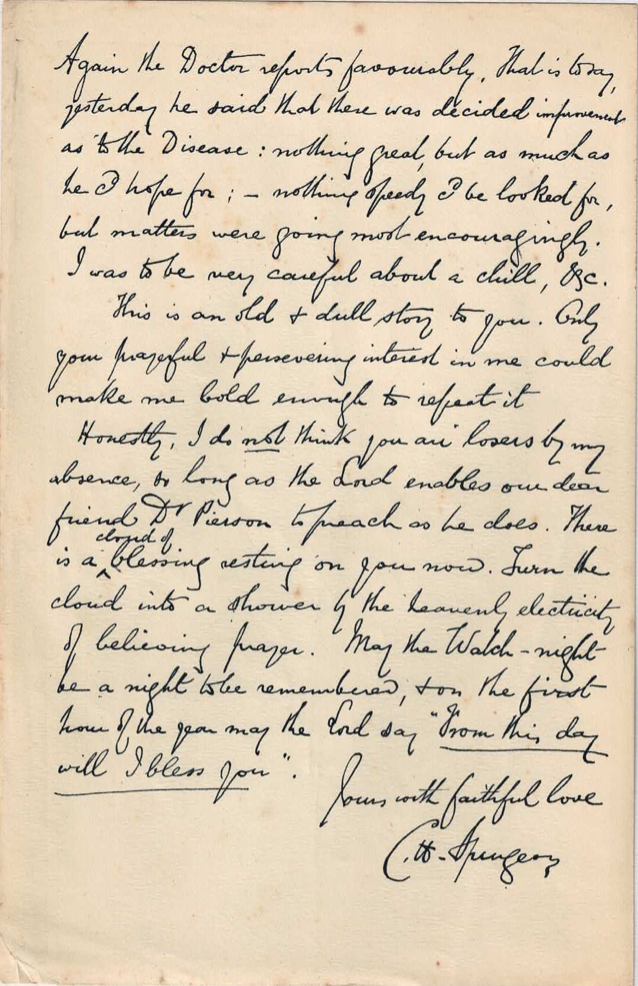 Again the Doctor reports favourably. That is to say,
yesterday he said that there was decided improvement
as to the Disease: nothing great, but as much as
he cd hope for; – nothing speedy cd be looked for,
but matters were going most encouragingly.
I was to be very careful about a chill, &c.
This is an old & dull story to you. Only
your prayerful & persevering interest in me could
make me bold enough to repeat it
Honestly, I do not think you are losers by my
absence, so long as the Lord enables our dear
friend Dr Pierson to preach as he does. There
cloud of
is a ^ blessing resting on you now. Turn the
cloud into a shower by the heavenly electricity
of believing prayer. May the Watch-night
be a night to be remembered, & on the first
hour of the year may the Lord say "From this day
will I bless you".
Yours with faithful love
C. H. Spurgeon